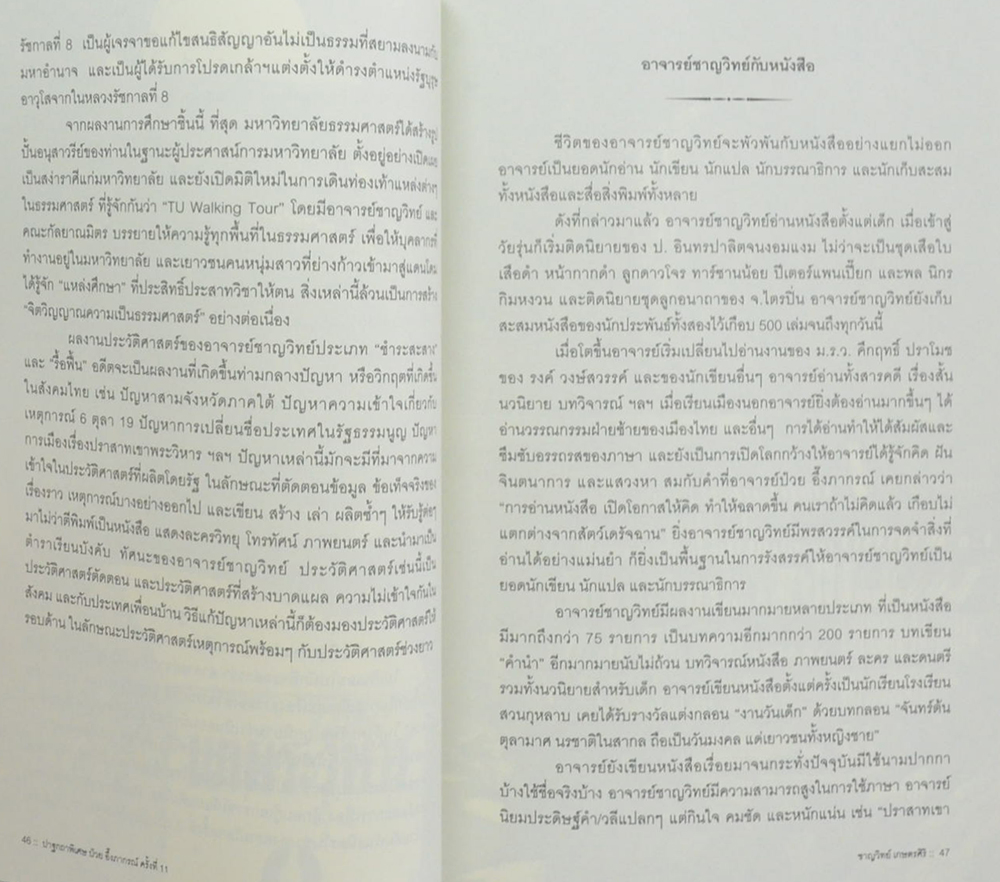 รัชกาลที่ 8 เป็นผู้เจรจาขอแก้ไขสนธิสัญญาอันไม่เป็นธรรมที่สยามลงนามกับ
มหาอำนาจ และเป็นผู้ได้รับการโปรดเกล้าฯแต่งตั้งให้ดำรงตำแหน่งรัฐบุรุษ
อาวุโสจากในหลวงรัชกาลที่ 8
จากผลงานการศึกษาชิ้นนี้ ที่สุด มหาวิทยาลัยธรรมศาสตร์ได้สร้างรูป
ปั้นอนุสาวรีย์ของท่านในฐานะผู้ประศาสน์การมหาวิทยาลัย ตั้งอยู่อย่างเปิดเผย
เป็นสง่าราศีแก่มหาวิทยาลัย และยังเปิดมิติใหม่ในการเดินท่องเท้าแหล่งต่างๆ
ในธรรมศาสตร์ ที่รู้จักกันว่า "TU Walking Tour" โดยมีอาจารย์ชาญวิทย์ และ
คณะกัลยาณมิตร บรรยายให้ความรู้ทุกพื้นที่ในธรรมศาสตร์ เพื่อให้บุคลากรที่
ทำงานอยู่ในมหาวิทยาลัย และเยาวชนคนหนุ่มสาวที่ย่างก้าวเข้ามาสู่แดนโดม
ได้รู้จัก "แหล่งศึกษา" ที่ประสิทธิ์ประสาทวิชาให้ตน สิ่งเหล่านี้ล้วนเป็นการสร้าง
"จิตวิญญาณความเป็นธรรมศาสตร์" อย่างต่อเนื่อง
ผลงานประวัติศาสตร์ของอาจารย์ชาญวิทย์ประเภท "ชำระสะสาง"
และ "รื้อฟื้น" อดีตจะเป็นผลงานที่เกิดขึ้นท่ามกลางปัญหา หรือวิกฤตที่เกิดขึ้น
ในสังคมไทย เช่น ปัญหาสามจังหวัดภาคใต้ ปัญหาความเข้าใจเกี่ยวกับ
เหตุการณ์ 6 ตุลา 19 ปัญหาการเปลี่ยนชื่อประเทศในรัฐธรรมนูญ ปัญหา
การเมืองเรื่องปราสาทเขาพระวิหาร ฯลฯ ปัญหาเหล่านี้มักจะมีที่มาจากความ
เข้าใจในประวัติศาสตร์ที่ผลิตโดยรัฐ ในลักษณะที่ตัดตอนข้อมูล ข้อเท็จจริงของ
เรื่องราว เหตุการณ์บางอย่างออกไป และเขียน สร้าง เล่า ผลิตซ้ำๆ ให้รับรู้ต่อๆ
มาไม่ว่าตีพิมพ์เป็นหนังสือ แสดงละครวิทยุ โทรทัศน์ ภาพยนตร์ และนำมาเป็น
ตำราเรียนบังคับ ทัศนะของอาจารย์ชาญวิทย์ ประวัติศาสตร์เช่นนี้เป็น
ประวัติศาสตร์ตัดตอน และประวัติศาสตร์ที่สร้างบาดแผล ความไม่เข้าใจกันใน
สังคม และกับประเทศเพื่อนบ้าน วิธีแก้ปัญหาเหล่านี้ก็ต้องมองประวัติศาสตร์ให้
รอบด้าน ในลักษณะประวัติศาสตร์เหตุการณ์พร้อมๆ กับประวัติศาสตร์ช่วงยาว
46 :: ปาฐกถาพิเศษ ป๋วย อึ๊งภากรณ์ ครั้งที่ 11
อาจารย์ชาญวิทย์กับหนังสือ
ชีวิตของอาจารย์ชาญวิทย์จะพัวพันกับหนังสืออย่างแยกไม่ออก
อาจารย์เป็นยอดนักอ่าน นักเขียน นักแปล นักบรรณาธิการ และนักเก็บสะสม
ทั้งหนังสือและสื่อสิ่งพิมพ์ทั้งหลาย
ดังที่กล่าวมาแล้ว อาจารย์ชาญวิทย์อ่านหนังสือตั้งแต่เด็ก เมื่อเข้าสู่
วัยรุ่นก็เริ่มติดนิยายของ ป. อินทรปาลิตจนงอมแงม ไม่ว่าจะเป็นชุดเสือใบ
เสือดำ หน้ากากดำ ลูกดาวโจร ทาร์ซานน้อย ปีเตอร์แพนเปี๊ยก และพล นิกร
กิมหงวน และติดนิยายชุดลูกอนาถาของ จ.ไตรปิ่น อาจารย์ชาญวิทย์ยังเก็บ
สะสมหนังสือของนักประพันธ์ทั้งสองไว้เกือบ 500 เล่มจนถึงทุกวันนี้
เมื่อโตขึ้นอาจารย์เริ่มเปลี่ยนไปอ่านงานของ ม.ร.ว. คึกฤทธิ์ ปราโมช
ของ รงค์ วงษ์สวรรค์ และของนักเขียนอื่นๆ อาจารย์อ่านทั้งสารคดี เรื่องสั้น
นวนิยาย บทวิจารณ์ ฯลฯ เมื่อเรียนเมืองนอกอาจารย์ยิ่งต้องอ่านมากขึ้นๆ ได้
อ่านวรรณกรรมฝ่ายซ้ายของเมืองไทย และอื่นๆ การได้อ่านทำให้ได้สัมผัสและ
ซึมซับอรรถรสของภาษา และยังเป็นการเปิดโลกกว้างให้อาจารย์ได้รู้จักคิด ฝัน
จินตนาการ และแสวงหา สมกับคำที่อาจารย์ป๋วย อึ๊งภากรณ์ เคยกล่าวว่า
"การอ่านหนังสือ เปิดโอกาสให้คิด ทำให้ฉลาดขึ้น คนเราถ้าไม่คิดแล้ว เกือบไม่
แตกต่างจากสัตว์เดรัจฉาน" ยิ่งอาจารย์ชาญวิทย์มีพรสวรรค์ในการจดจำสิ่งที่
อ่านได้อย่างแม่นยำ ก็ยิ่งเป็นพื้นฐานในการรังสรรค์ให้อาจารย์ชาญวิทย์เป็น
ยอดนักเขียน นักแปล และนักบรรณาธิการ
อาจารย์ชาญวิทย์มีผลงานเขียนมากมายหลายประเภท ที่เป็นหนังสือ
มีมากถึงกว่า 75 รายการ เป็นบทความอีกมากกว่า 200 รายการ บทเขียน
"คำนำ" อีกมากมายนับไม่ถ้วน บทวิจารณ์หนังสือ ภาพยนตร์ ละคร และดนตรี
รวมทั้งนวนิยายสำหรับเด็ก อาจารย์เขียนหนังสือตั้งแต่ครั้งเป็นนักเรียนโรงเรียน
สวนกุหลาบ เคยได้รับรางวัลแต่งกลอน "งานวันเด็ก" ด้วยบทกลอน "จันทร์ต้น
ตุลามาศ นรชาติในสากล ถือเป็นวันมงคล แด่เยาวชนทั้งหญิงชาย"
อาจารย์ยังเขียนหนังสือเรื่อยมาจนกระทั่งปัจจุบันมีใช้นามปากกา
บ้างใช้ชื่อจริงบ้าง อาจารย์ชาญวิทย์มีความสามารถสูงในการใช้ภาษา อาจารย์
นิยมประดิษฐ์คำ/วลีแปลกๆ แต่กินใจ คมชัด และหนักแน่น เช่น "ปราสาทเขา
ชาญวิทย์ เกษตรศิริ :: 47